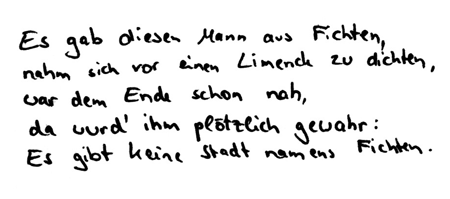 Es gab diesen Mann aus Fichten,
nahm sich vor einen Limerick zu dichten,
war dem Ende schon nah,
da wurd' ihm plötzlich gewahr:
Es gibt keine Stadt namens Fichten.